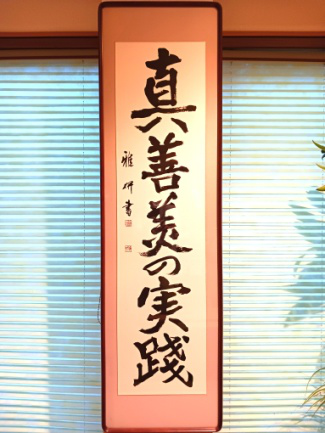 真善美の実践
雅研書